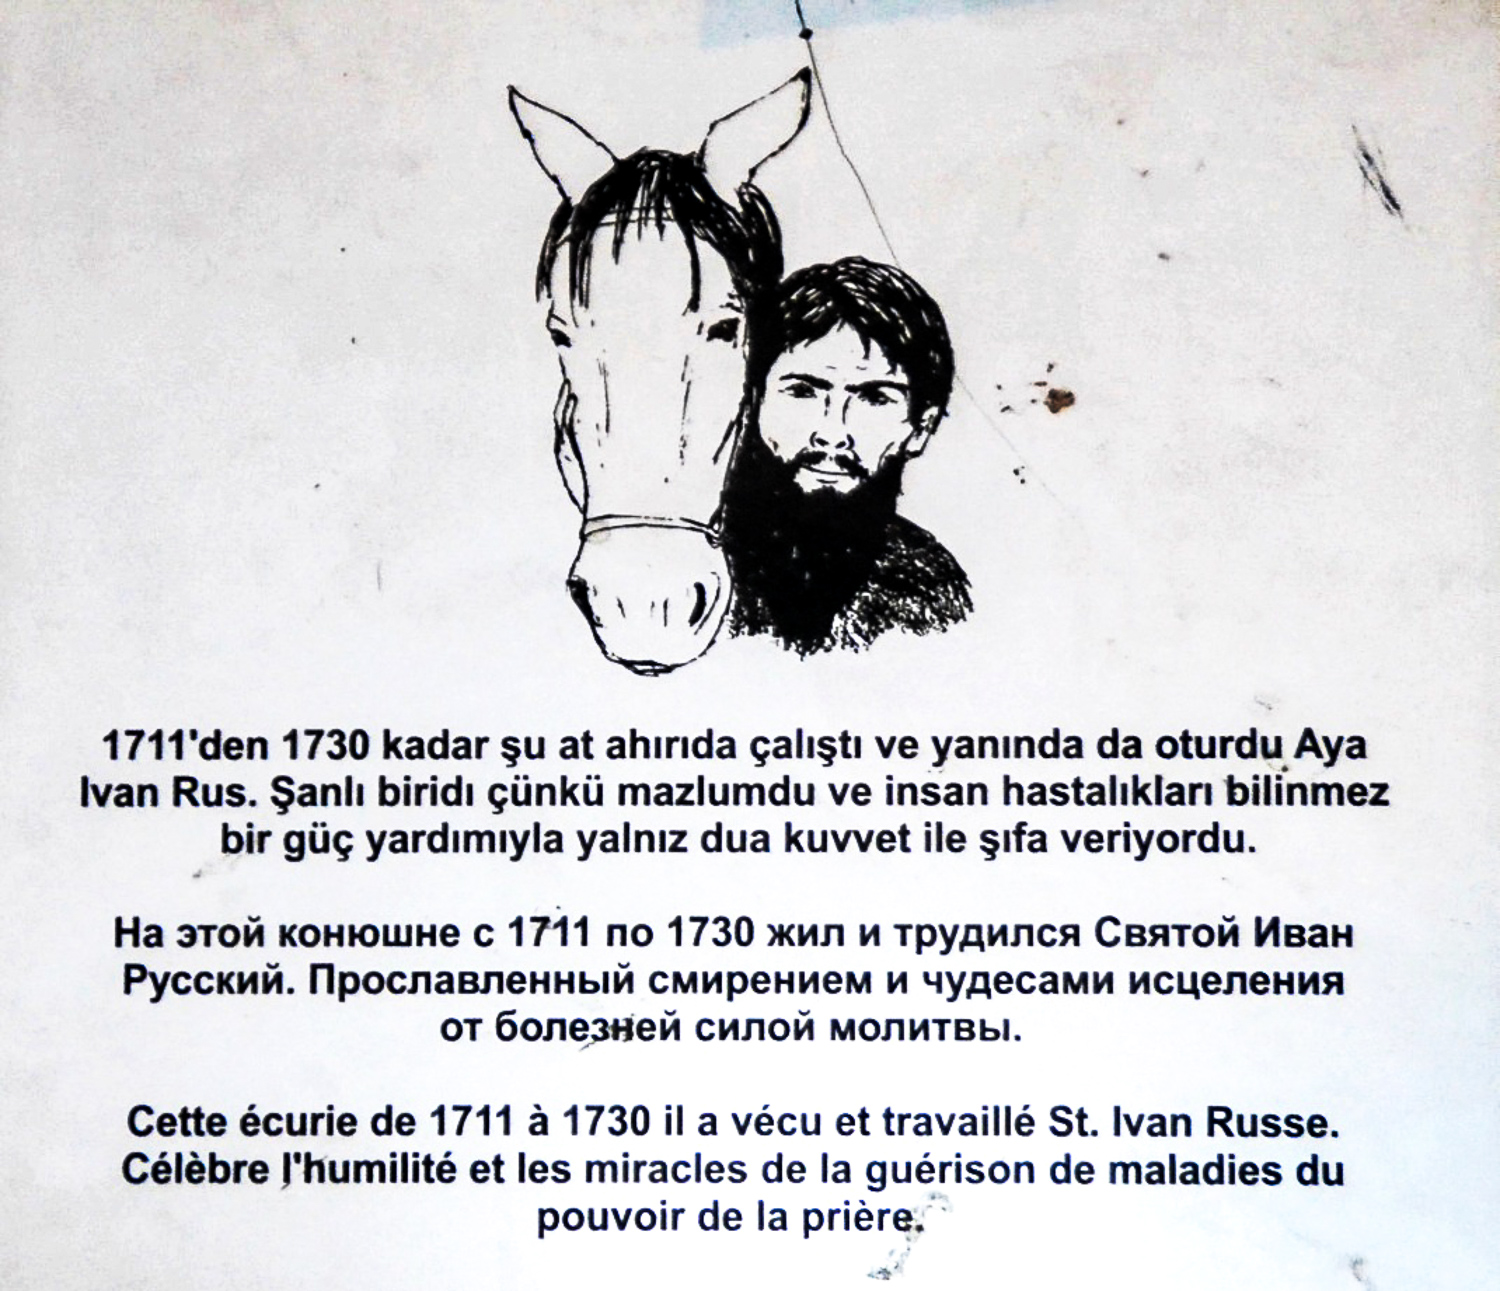 1711'den 1730 kadar şu at ahırıda çalıştı ve yanında da oturdu Aya
Ivan Rus. Şanlı biridı çünkü mazlumdu ve insan hastalıkları bilinmez
bir güç yardımıyla yalnız dua kuvvet ile şıfa veriyordu.
На этой конюшне с 1711 по 1730 жил и трудился Святой Иван
Русский. Прославленный смирением и чудесами исцеления
от болезней силой молитвы.
Cette écurie de 1711 à 1730 il a vécu et travaillé St. Ivan Russe.
Célèbre l'humilité et les miracles de la guérison de maladies du
pouvoir de la prière.